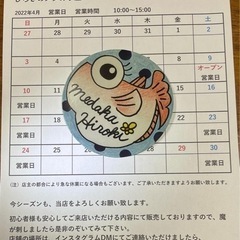 2022年4月 営業日 営業時間 10:00～15:00
日 月 火 水 木 金 土
27 28 1 2
3 8 9
オープン
営業日
10 16
営業日
17 23
営業日
24 30
営業日 営業日
medaka
Hiroki
（注）店主の都合により急な休業になる場合もございます、ご了承いただきますようお願い致します。
今シーズンも、当店をよろしくお願い致します。
初心者様も安心してご来店いただける内容にて販売しておりますので、魔が
刺しましたら是非のぞいてみて下さい。
店舗の場所は、インスタグラムDMにてご連絡いただきましたら